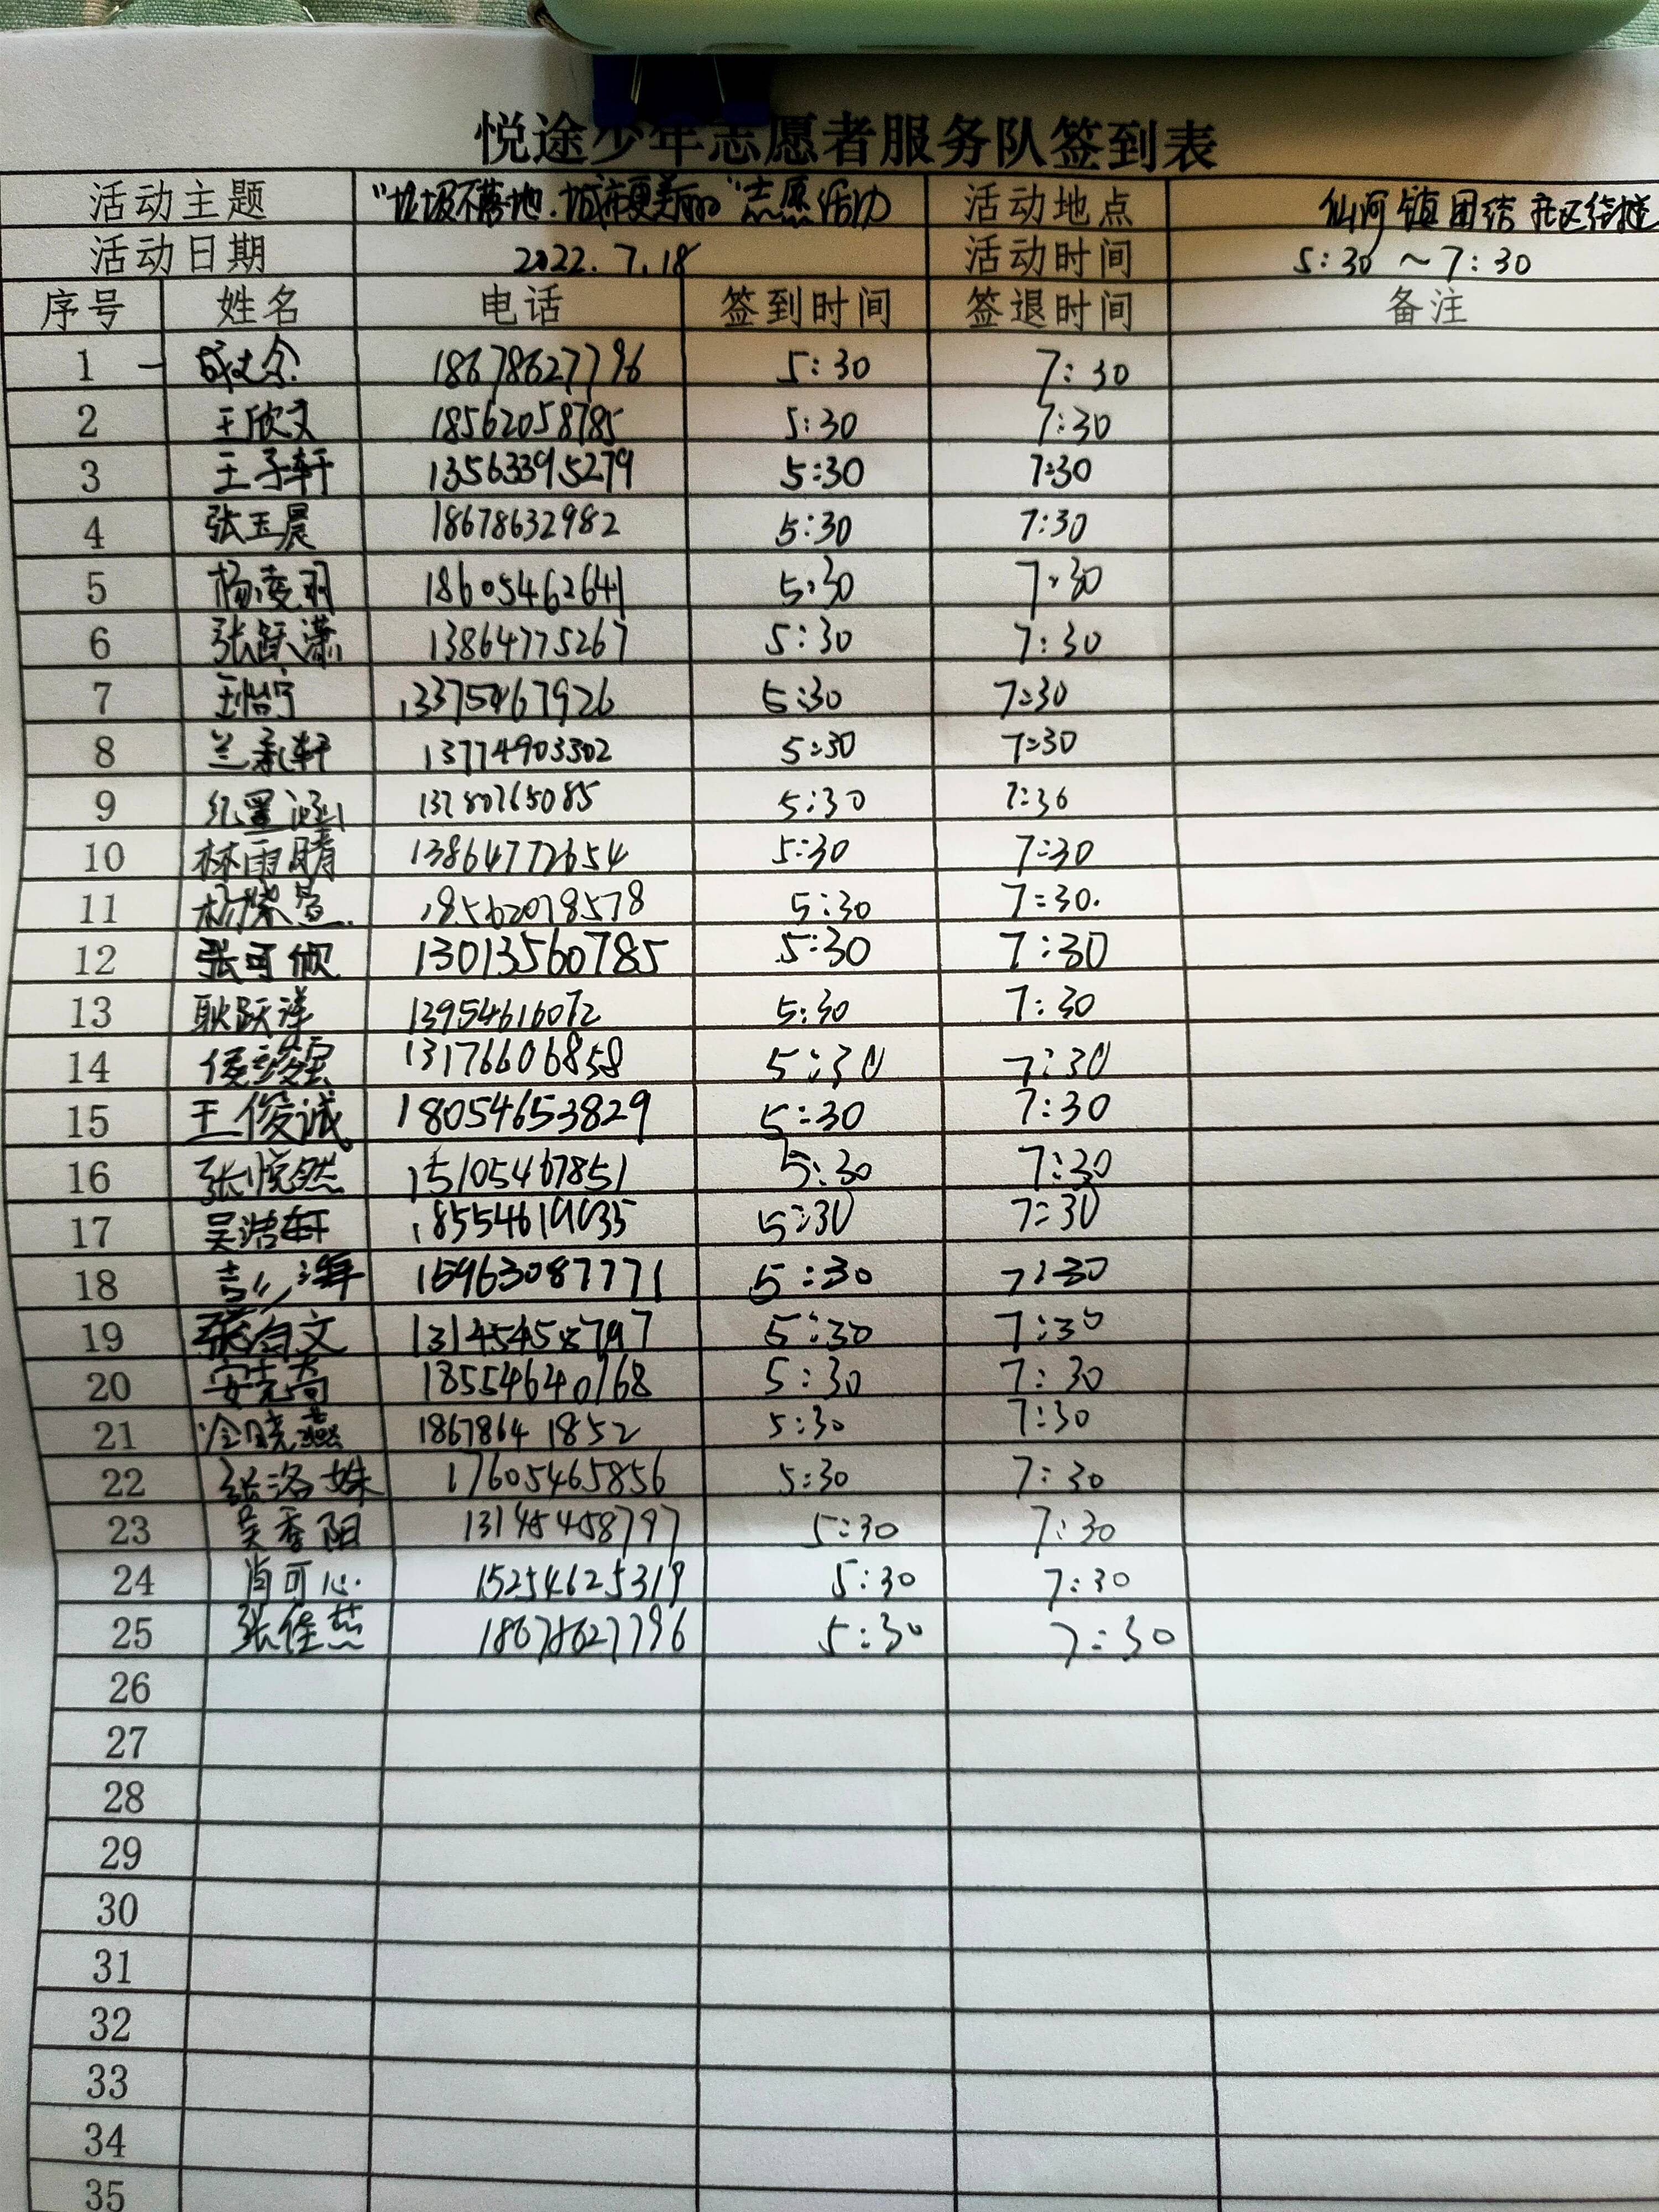 悦途少年志愿者服务队签到表
活动主题 "垃圾不落地.城市更美丽"志愿活动 活动地点 仙河镇团结社区
活动日期 2022.7.18 活动时间 5:30～7:30
序号 姓名 电话 签到时间 签退时间 备注
1 18678627796 5:30 7:30
2 王欣文 18562058785 5:30 7:30
3 王子轩 13563395279 5:30 7:30
4 张玉晨 18678632982 5:30 7:30
5 杨凌羽 18605462641 5:30 7:30
6 张跃潇 13864775267 5:30 7:30
7 王怡宁 13375467926 5:30 7:30
8 兰承轩 13774903302 5:30 7:30
9 5:30 7:30
10 林雨晴 13864772654 5:30 7:30
11 18562078578 5:30 7:30.
12 张可欣 13013560785 5:30 7:30
13 耿跃洋 13954616072 5:30 7:30
14 13176606858 5:30 7:30
15 王俊诚 18054653829 5:30 7:30
16 张悦然 15105467851 5:30 7:30
17 吴浩轩 5:30 7:30
18 15963087771 5:30 7:30
19 5:30 7:30
20 18554640168 5:30 7:30
21 冷晓燕 18678641852 5:30 7:30
22 张洛姝 17605465856 5:30 7:30
23 吴香阳 13145458797 5:30 7:30
24 肖可心. 15254625319 5:30 7:30
25 张佳慧 18678627796 5:30 7:30
26
27
28
29
30
31
32
33
34
35